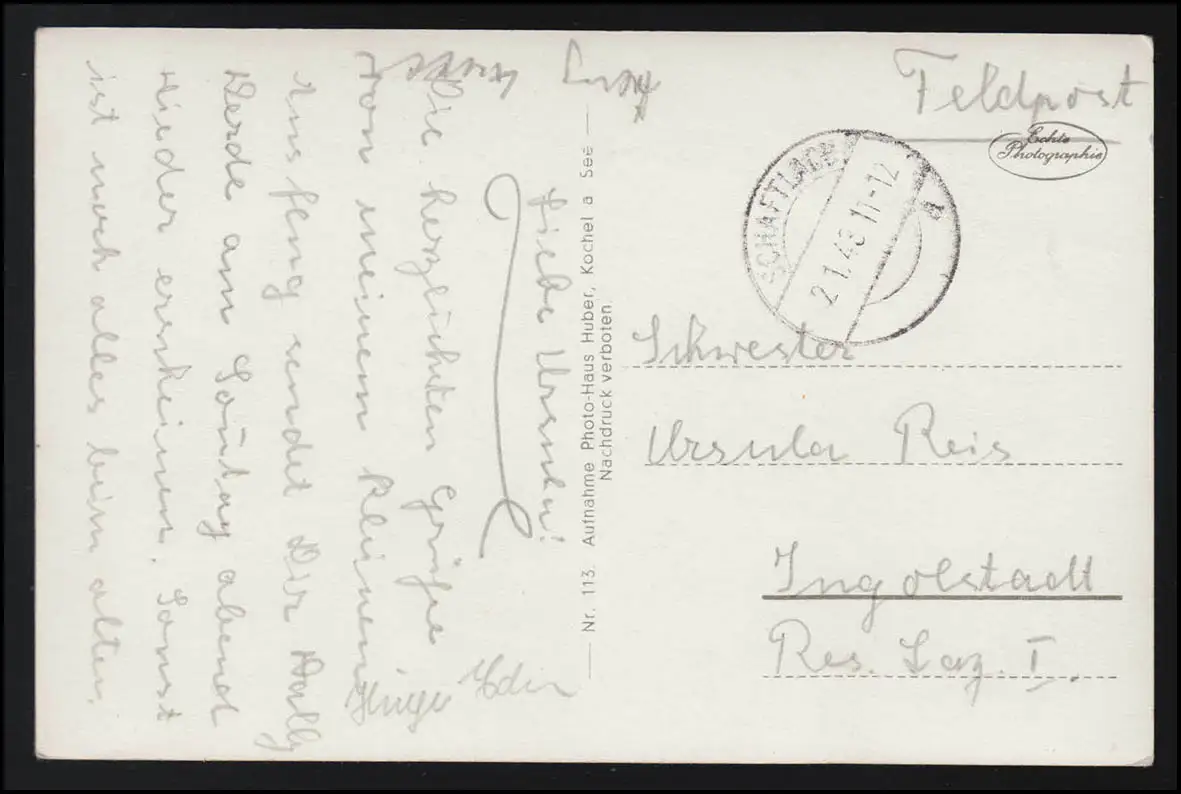 Feldpost
Echte
Photographie
SCHAFTLACH
21.1.43 11-12
a
Schwester
Ursula Reis
Ingolstadt
Res. Laz. I.
Nr. 113. Aufnahme Photo-Haus Huber, Kochel a See
Nachdruck verboten.
Liebe Ursula!
Die herzlichsten Grüße
von meinem kleinen
sendet Dir
Werde am Sonntag abend
wieder erscheinen. Sonst
ist noch alles beim alten.